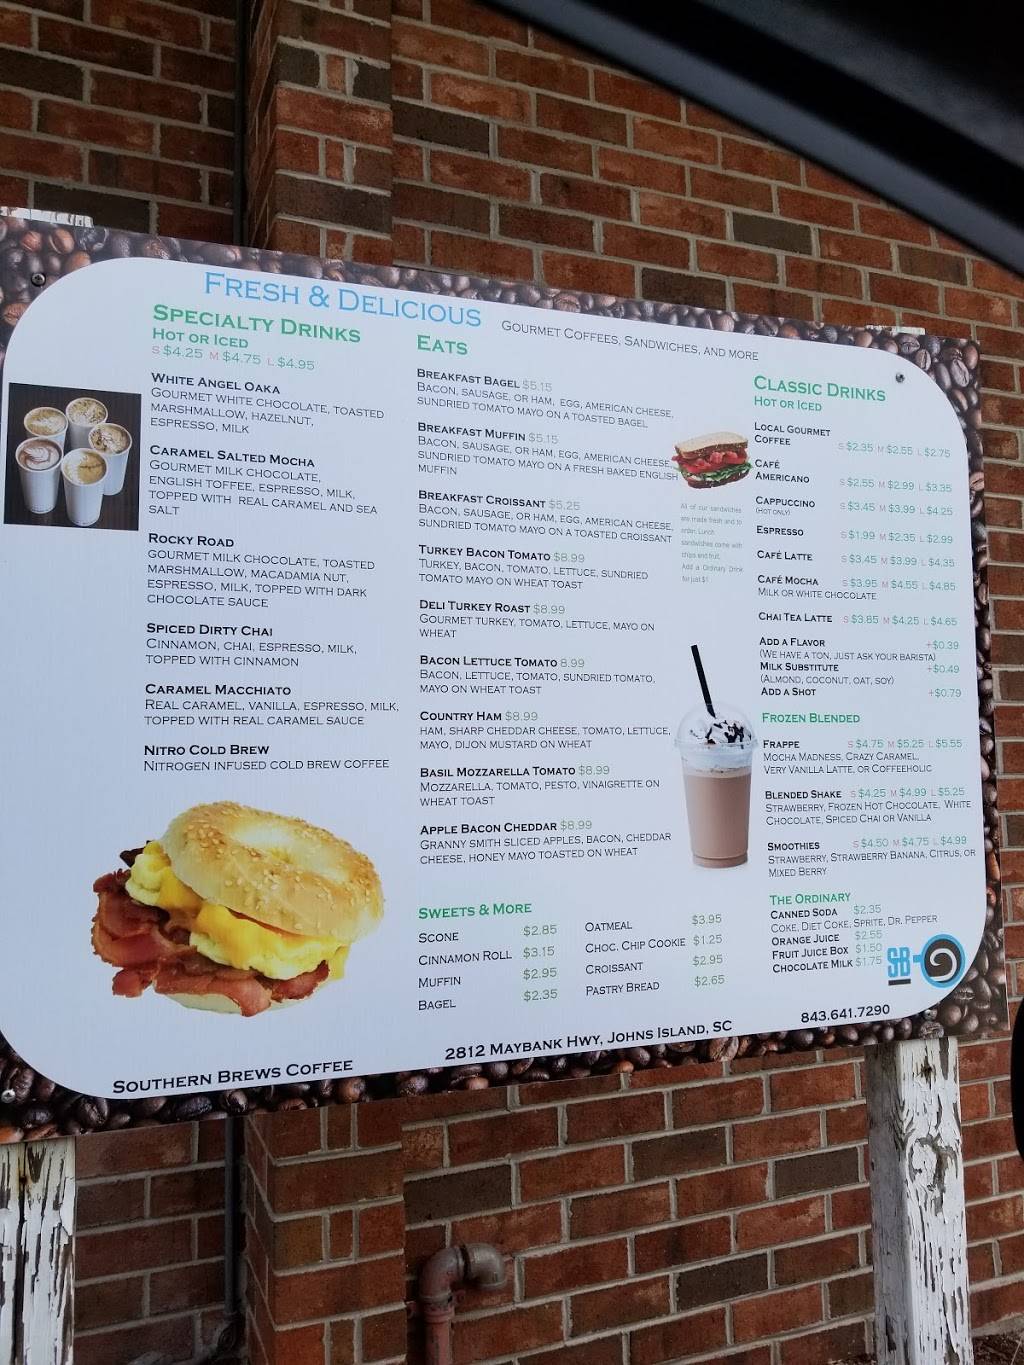 FRESH & DELICIOUS
GOURMET COFFEES, SANDWICHES, AND MORE
SPECIALTY DRINKS
HOT OR ICED
S $4.25 M $4.75 L $4.95
WHITE ANGEL OAKA
GOURMET WHITE CHOCOLATE, TOASTED
MARSHMALLOW, HAZELNUT,
ESPRESSO, MILK
CARAMEL SALTED MOCHA
GOURMET MILK CHOCOLATE,
ENGLISH TOFFEE, ESPRESSO, MILK,
TOPPED WITH REAL CARAMEL AND SEA
SALT
ROCKY ROAD
GOURMET MILK CHOCOLATE, TOASTED
MARSHMALLOW, MACADAMIA NUT,
ESPRESSO, MILK, TOPPED WITH DARK
CHOCOLATE SAUCE
SPICED DIRTY CHAI
CINNAMON, CHAI, ESPRESSO, MILK,
TOPPED WITH CINNAMON
CARAMEL MACCHIATO
REAL CARAMEL, VANILLA, ESPRESSO, MILK,
TOPPED WITH REAL CARAMEL SAUCE
NITRO COLD BREW
NITROGEN INFUSED COLD BREW COFFEE
EATS
BREAKFAST BAGEL $5.15
BACON, SAUSAGE, OR HAM, EGG, AMERICAN CHEESE,
SUNDRIED TOMATO MAYO ON A TOASTED BAGEL
BREAKFAST MUFFIN $5.15
BACON, SAUSAGE, OR HAM, EGG, AMERICAN CHEESE,
SUNDRIED TOMATO MAYO ON A FRESH BAKED ENGLISH
MUFFIN
BREAKFAST CROISSANT $5.25
BACON, SAUSAGE, OR HAM, EGG, AMERICAN CHEESE,
SUNDRIED TOMATO MAYO ON A TOASTED CROISSANT
TURKEY BACON TOMATO $8.99
TURKEY, BACON, TOMATO, LETTUCE, SUNDRIED
TOMATO MAYO ON WHEAT TOAST
DELI TURKEY ROAST $8.99
GOURMET TURKEY, TOMATO, LETTUCE, MAYO ON
WHEAT
BACON LETTUCE TOMATO 8.99
BACON, LETTUCE, TOMATO, SUNDRIED TOMATO,
MAYO ON WHEAT TOAST
COUNTRY HAM $8.99
HAM, SHARP CHEDDAR CHEESE, TOMATO, LETTUCE,
MAYO, DIJON MUSTARD ON WHEAT
BASIL MOZZARELLA TOMATO $8.99
MOZZARELLA, TOMATO, PESTO, VINAIGRETTE ON
WHEAT TOAST
APPLE BACON CHEDDAR $8.99
GRANNY SMITH SLICED APPLES, BACON, CHEDDAR
CHEESE, HONEY MAYO TOASTED ON WHEAT
All of our sandwiches
are made fresh and to
order. Lunch
sandwiches come with
chips and fruit.
Add a Ordinary Drink
for just $1
SWEETS & MORE
SCONE $2.85
CINNAMON ROLL $3.15
MUFFIN $2.95
BAGEL $2.35
OATMEAL $3.95
CHOC. CHIP COOKIE $1.25
CROISSANT $2.95
PASTRY BREAD $2.65
CLASSIC DRINKS
HOT OR ICED
LOCAL GOURMET
COFFEE S $2.35 M $2.55 L $2.75
CAFÉ
AMERICANO S $2.55 M $2.99 L $3.35
CAPPUCCINO S $3.45 M $3.99 L $4.25
(HOT ONLY)
ESPRESSO S $1.99 M $2.35 L $2.99
CAFÉ LATTE S $3.45 M $3.99 L $4.35
CAFÉ MOCHA S $3.95 M $4.55 L $4.85
MILK OR WHITE CHOCOLATE
CHAI TEA LATTE S $3.85 M $4.25 L $4.65
ADD A FLAVOR +$0.39
(WE HAVE A TON, JUST ASK YOUR BARISTA)
MILK SUBSTITUTE +$0.49
(ALMOND, COCONUT, OAT, SOY)
ADD A SHOT +$0.79
FROZEN BLENDED
FRAPPE S $4.75 M $5.25 L $5.55
MOCHA MADNESS, CRAZY CARAMEL,
VERY VANILLA LATTE, OR COFFEEHOLIC
BLENDED SHAKE S $4.25 M $4.99 L $5.25
STRAWBERRY, FROZEN HOT CHOCOLATE, WHITE
CHOCOLATE, SPICED CHAI OR VANILLA
SMOOTHIES S $4.50 M $4.75 L $4.99
STRAWBERRY, STRAWBERRY BANANA, CITRUS, OR
MIXED BERRY
THE ORDINARY
CANNED SODA $2.35
COKE, DIET COKE, SPRITE, DR. PEPPER
ORANGE JUICE $2.55
FRUIT JUICE BOX $1.50
CHOCOLATE MILK $1.75
SB
SOUTHERN BREWS COFFEE
2812 MAYBANK HWY, JOHNS ISLAND, SC
843.641.7290